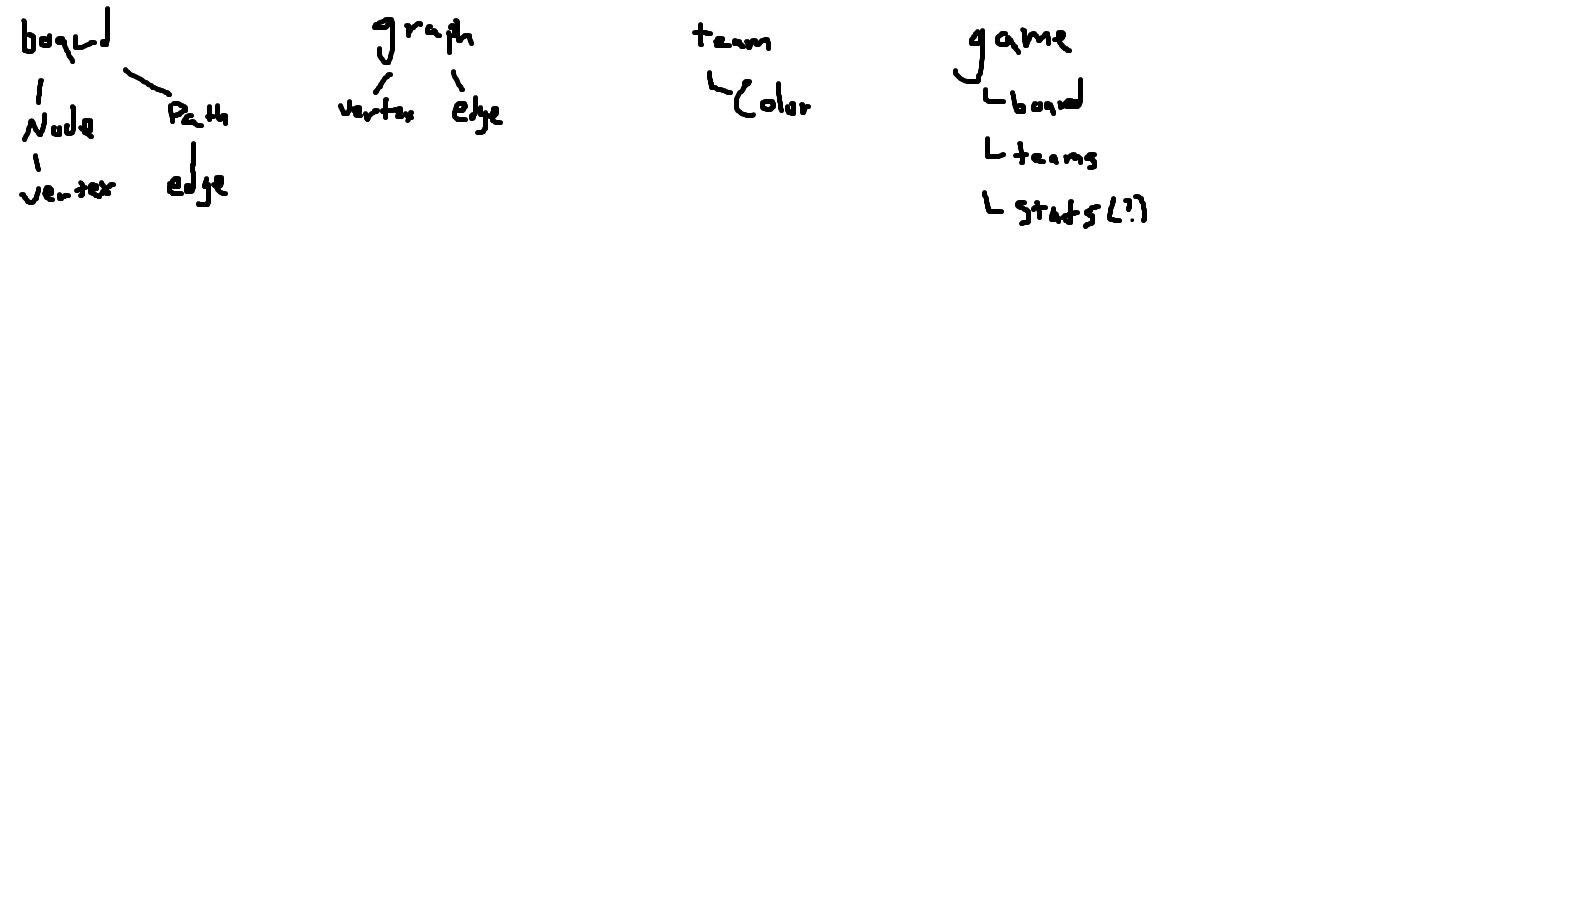 board
Node
Path
vertex
edge
graph
vertex
edge
team
Color
game
board
teams
stats(?)